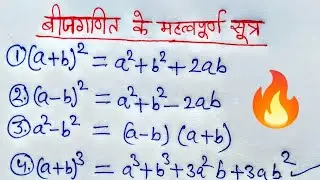 बीजगणित के महत्वपूर्ण सूत्र
① (a+b)² = a²+b²+2ab
②. (a-b)² = a²+b²-2ab
③. a²-b² = (a-b) (a+b)
④. (a+b)³ = a³+b³+3a²b+3ab²